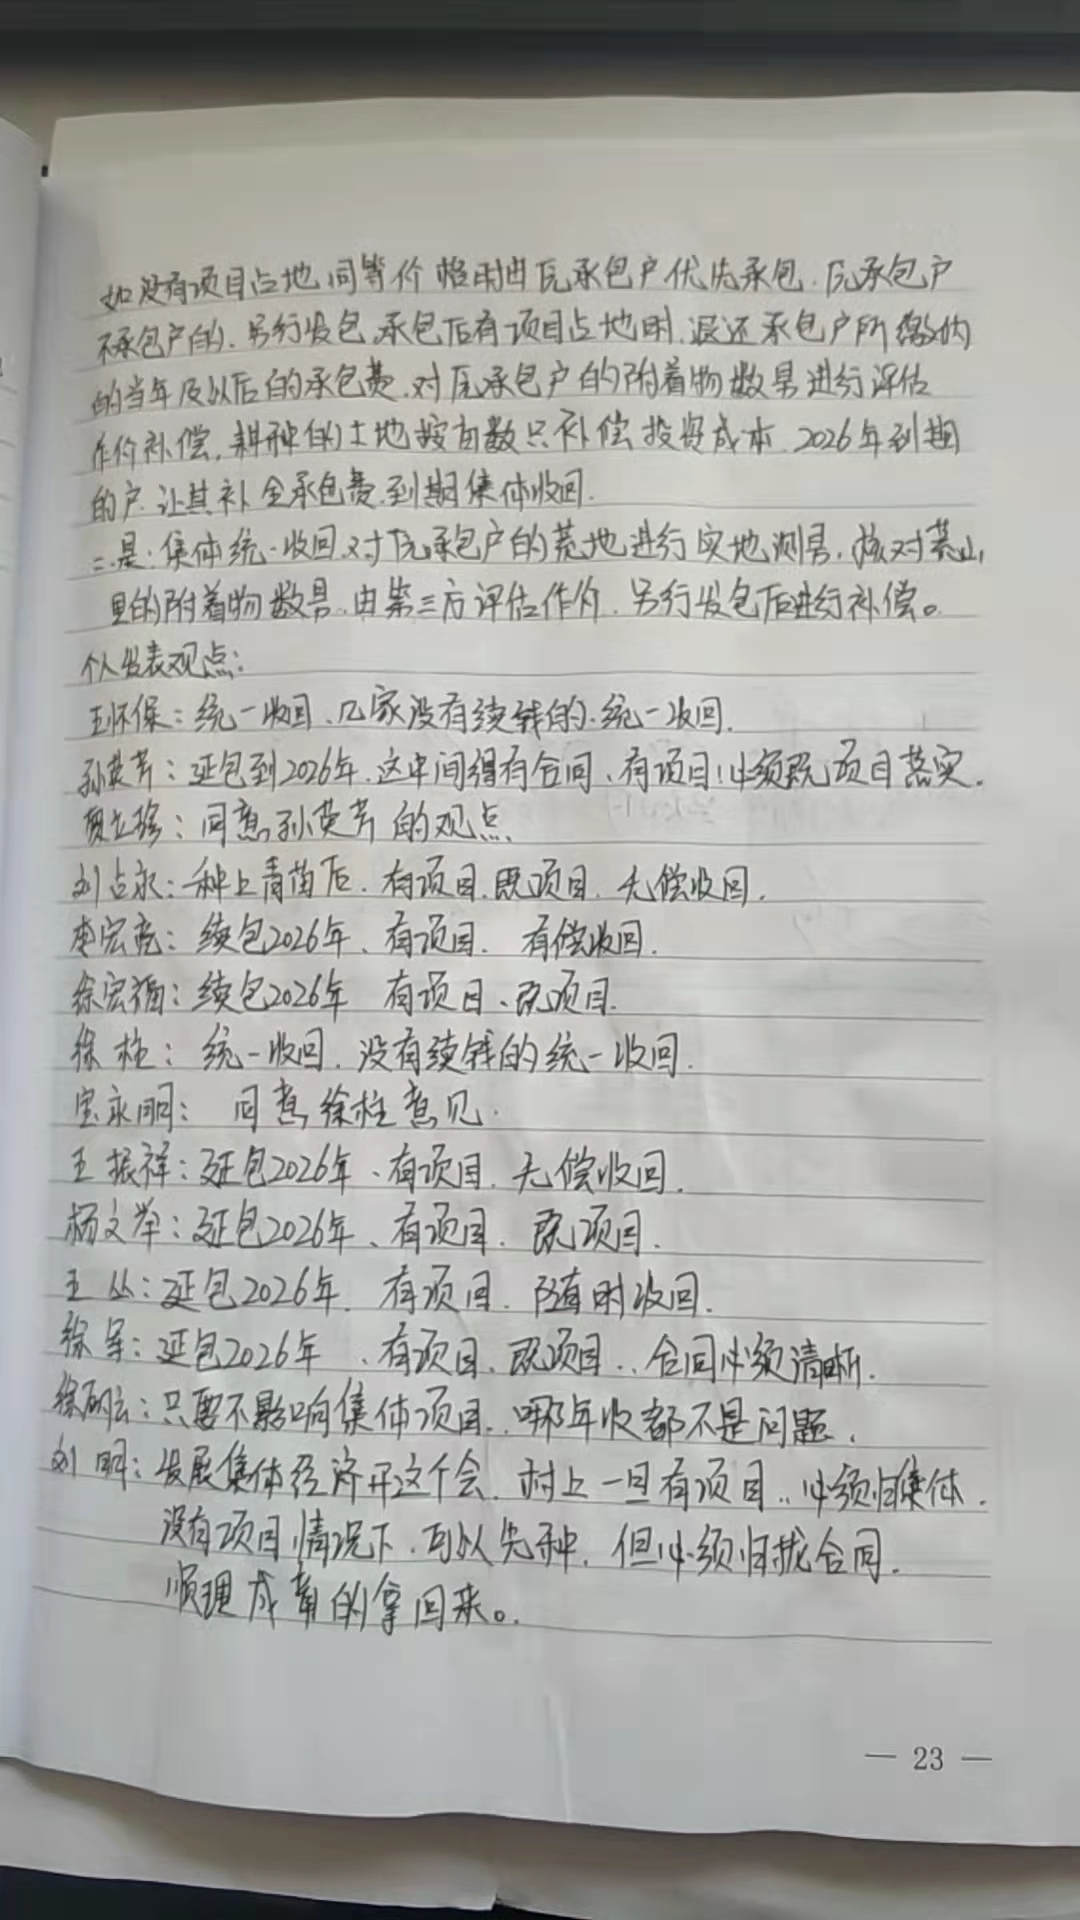 如没有项目占地,同等价格时由原承包户优先承包.原承包户
不承包户的.另行发包,承包后有项目占地时.退还承包户所缴纳
的当年及以后的承包费.对原承包户的附着物数量进行评估
作价补偿,耕种的土地按亩数只补偿投资成本.2026年到期
的户.让其补全承包费.到期集体收回.
二是:集体统一收回.对原承包户的荒地进行实地测量.核对荒山
里的附着物数量.由第三方评估作价.另行发包后进行补偿。
个人发表观点:
王怀保:统一收回、几家没有续钱的.统一收回.
孙英芳:延包到2026年.这中间得有合同、有项目必须既项目落实.
贾立珍:同意孙英芳的观点
刘占永:种上青苗后.有项目.既项目.无偿收回.
李宏亮:续包2026年、有项目.有偿收回.
徐宏福:续包2026年 有项目、既项目.
徐柱:统一收回.没有续钱的统一收回.
宝永明:同意徐柱意见.
王振祥:延包2026年、有项目.无偿收回.
杨文举:延包2026年、有项目.既项目.
王丛:延包2026年.有项目.随时收回.
徐军:延包2026年、有项目.既项目..合同必须清晰.
徐:只要不影响集体项目..哪年收都不是问题.
刘明:发展集体经济开这个会.村上一旦有项目..必须归集体.
没有项目情况下.可以先种.但必须归拢合同.
顺理成章的拿回来。.
— 23 —